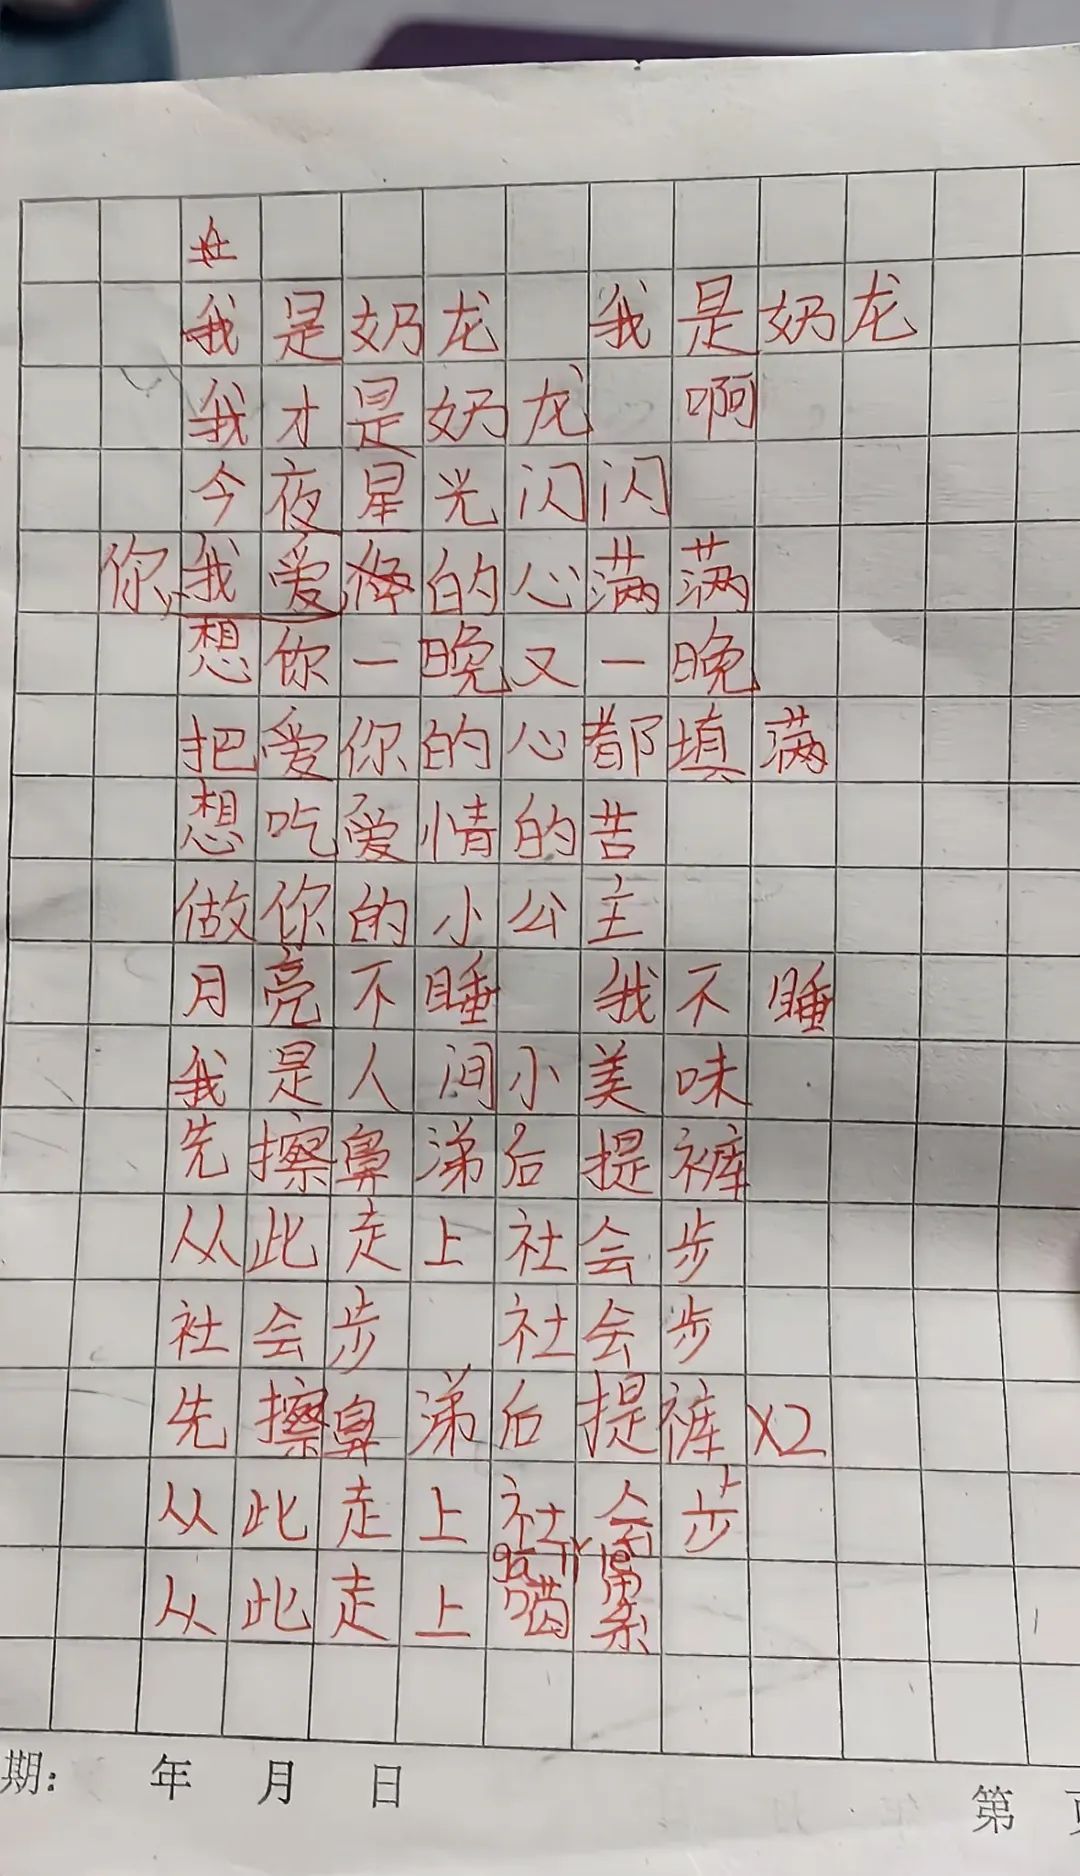 我是奶龙 我是奶龙
我才是奶龙 啊
今夜星光闪闪
你,我爱的心满满
想你一晚又一晚
把爱你的心都填满
想吃爱情的苦
做你的小公主
月亮不睡 我不睡
我是人间小美味
先擦鼻涕后提裤
从此走上社会步
社会步 社会步
先擦鼻涕后提裤 X2
从此走上社会步
从此走上
期: 年 月 日
第